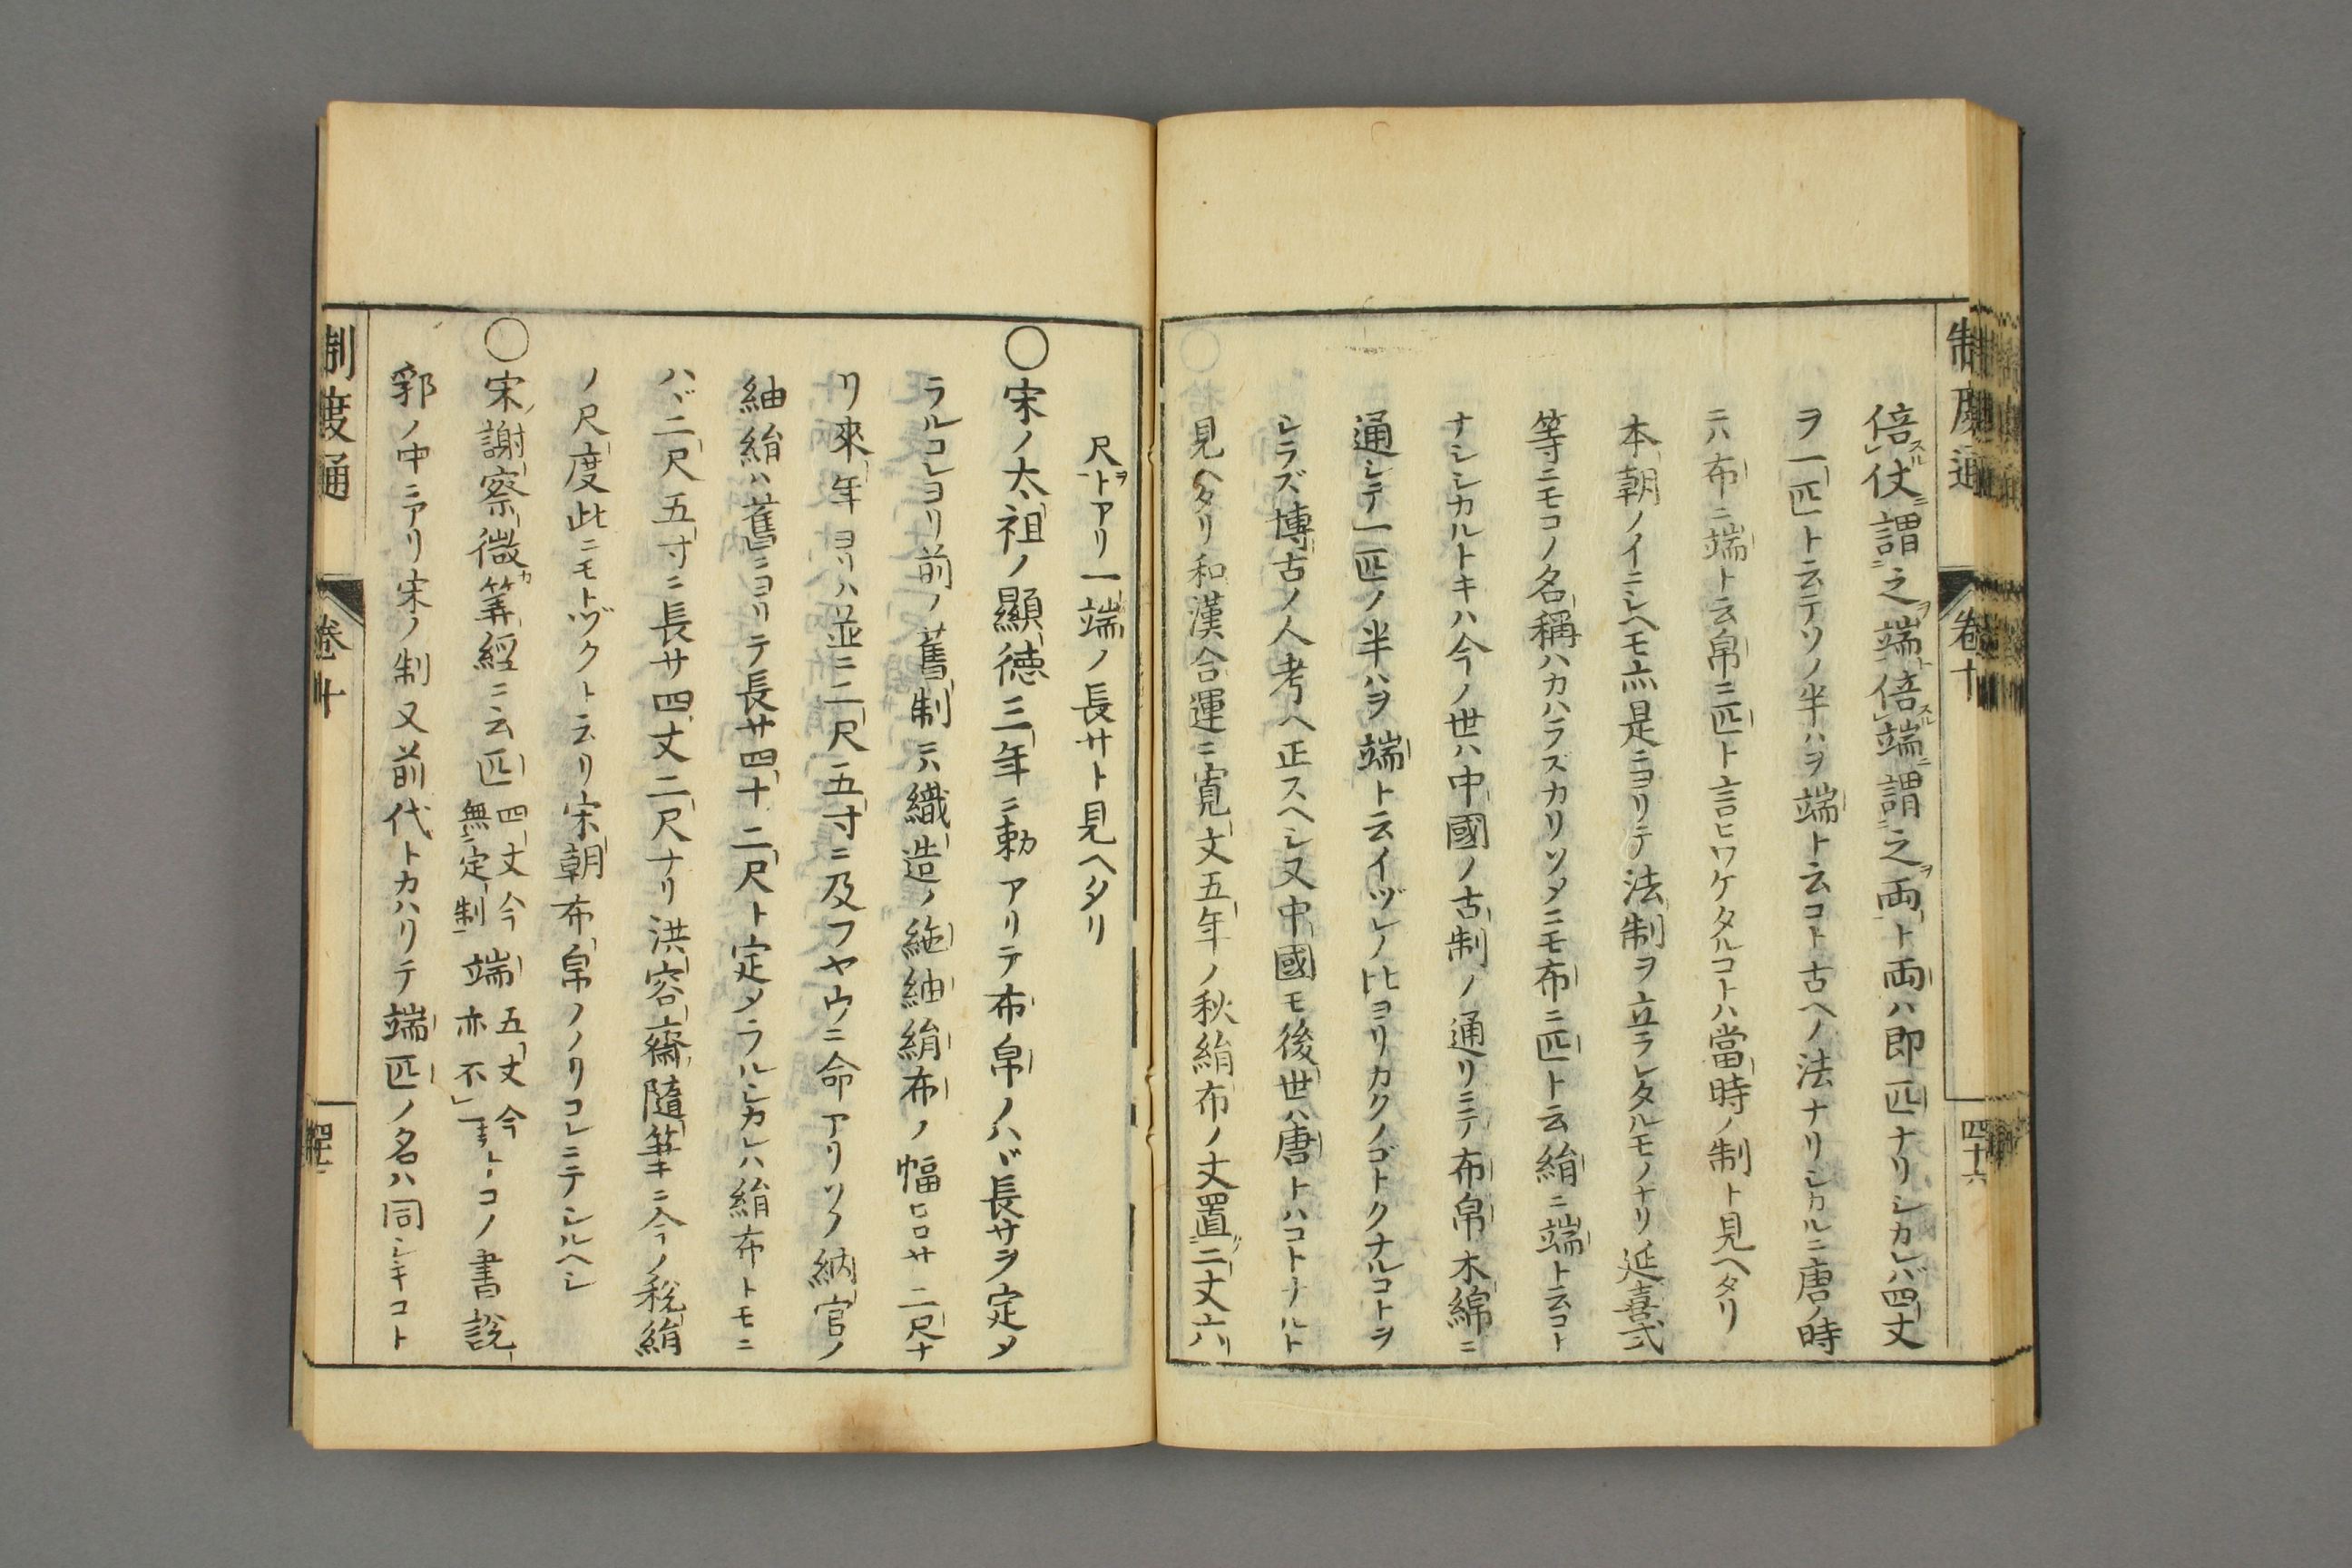 制度通 卷十 四十六
倍スル仗ニ謂之ヲ端ト倍スル端ニ謂之ヲ両ト両ハ即匹ナリシカレバ四丈
ヲ一匹ト云テソノ半ハヲ端ト云コト古ヘノ法ナリシカルニ唐ノ時
ニハ布ニ端ト云帛ニ匹ト言ヒワケタルコトハ當時ノ制ト見ヘタリ
本朝ノイニシヘモ亦是ニヨリテ法制ヲ立ラレタルモノナリ延喜式
等ニモコノ名稱ハカハラズカリソメニモ布ニ匹ト云絹ニ端ト云コト
ナシシカルトキハ今ノ世ハ中國ノ古制ノ通リニテ布帛木綿ニ
通シテ一匹ノ半ハヲ端ト云イヅレノ比ヨリカクノゴトクナルコトヲ
シラズ博古ノ人考ヘ正スヘシ又中國モ後世ハ唐トハコトナルト
見ヘタリ和漢合運ニ寛文五年ノ秋絹布ノ丈置ニ二丈六
尺トアリ一端ノ長サト見ヘタリ
○宋ノ太祖ノ顯徳三年ニ勅アリテ布帛ノハヾ長サヲ定メ
ラルコレヨリ前ノ舊制ニハ織造ノ絁紬絹布ノ幅ヒロサ二尺ナ
リ來年ヨリハ並ニ二尺五寸ニ及フヤウニ命アリソノ納官ノ
紬絹ハ舊ニヨリテ長サ四十二尺ト定メラルシカレハ絹布トモニ
ハヾ二尺五寸ニ長サ四丈二尺ナリ洪容齋隨筆ニ今ノ税絹
ノ尺度此ニモトヅクト云リ宋朝布帛ノノリコレニテシルヘシ
○宋ノ謝察微カ筭經ニ云匹四丈今無定制端五丈今亦不一トコノ書説
郛ノ中ニアリ宋ノ制又前代トカハリテ端匹ノ名ハ同シキコト
制度通 卷十